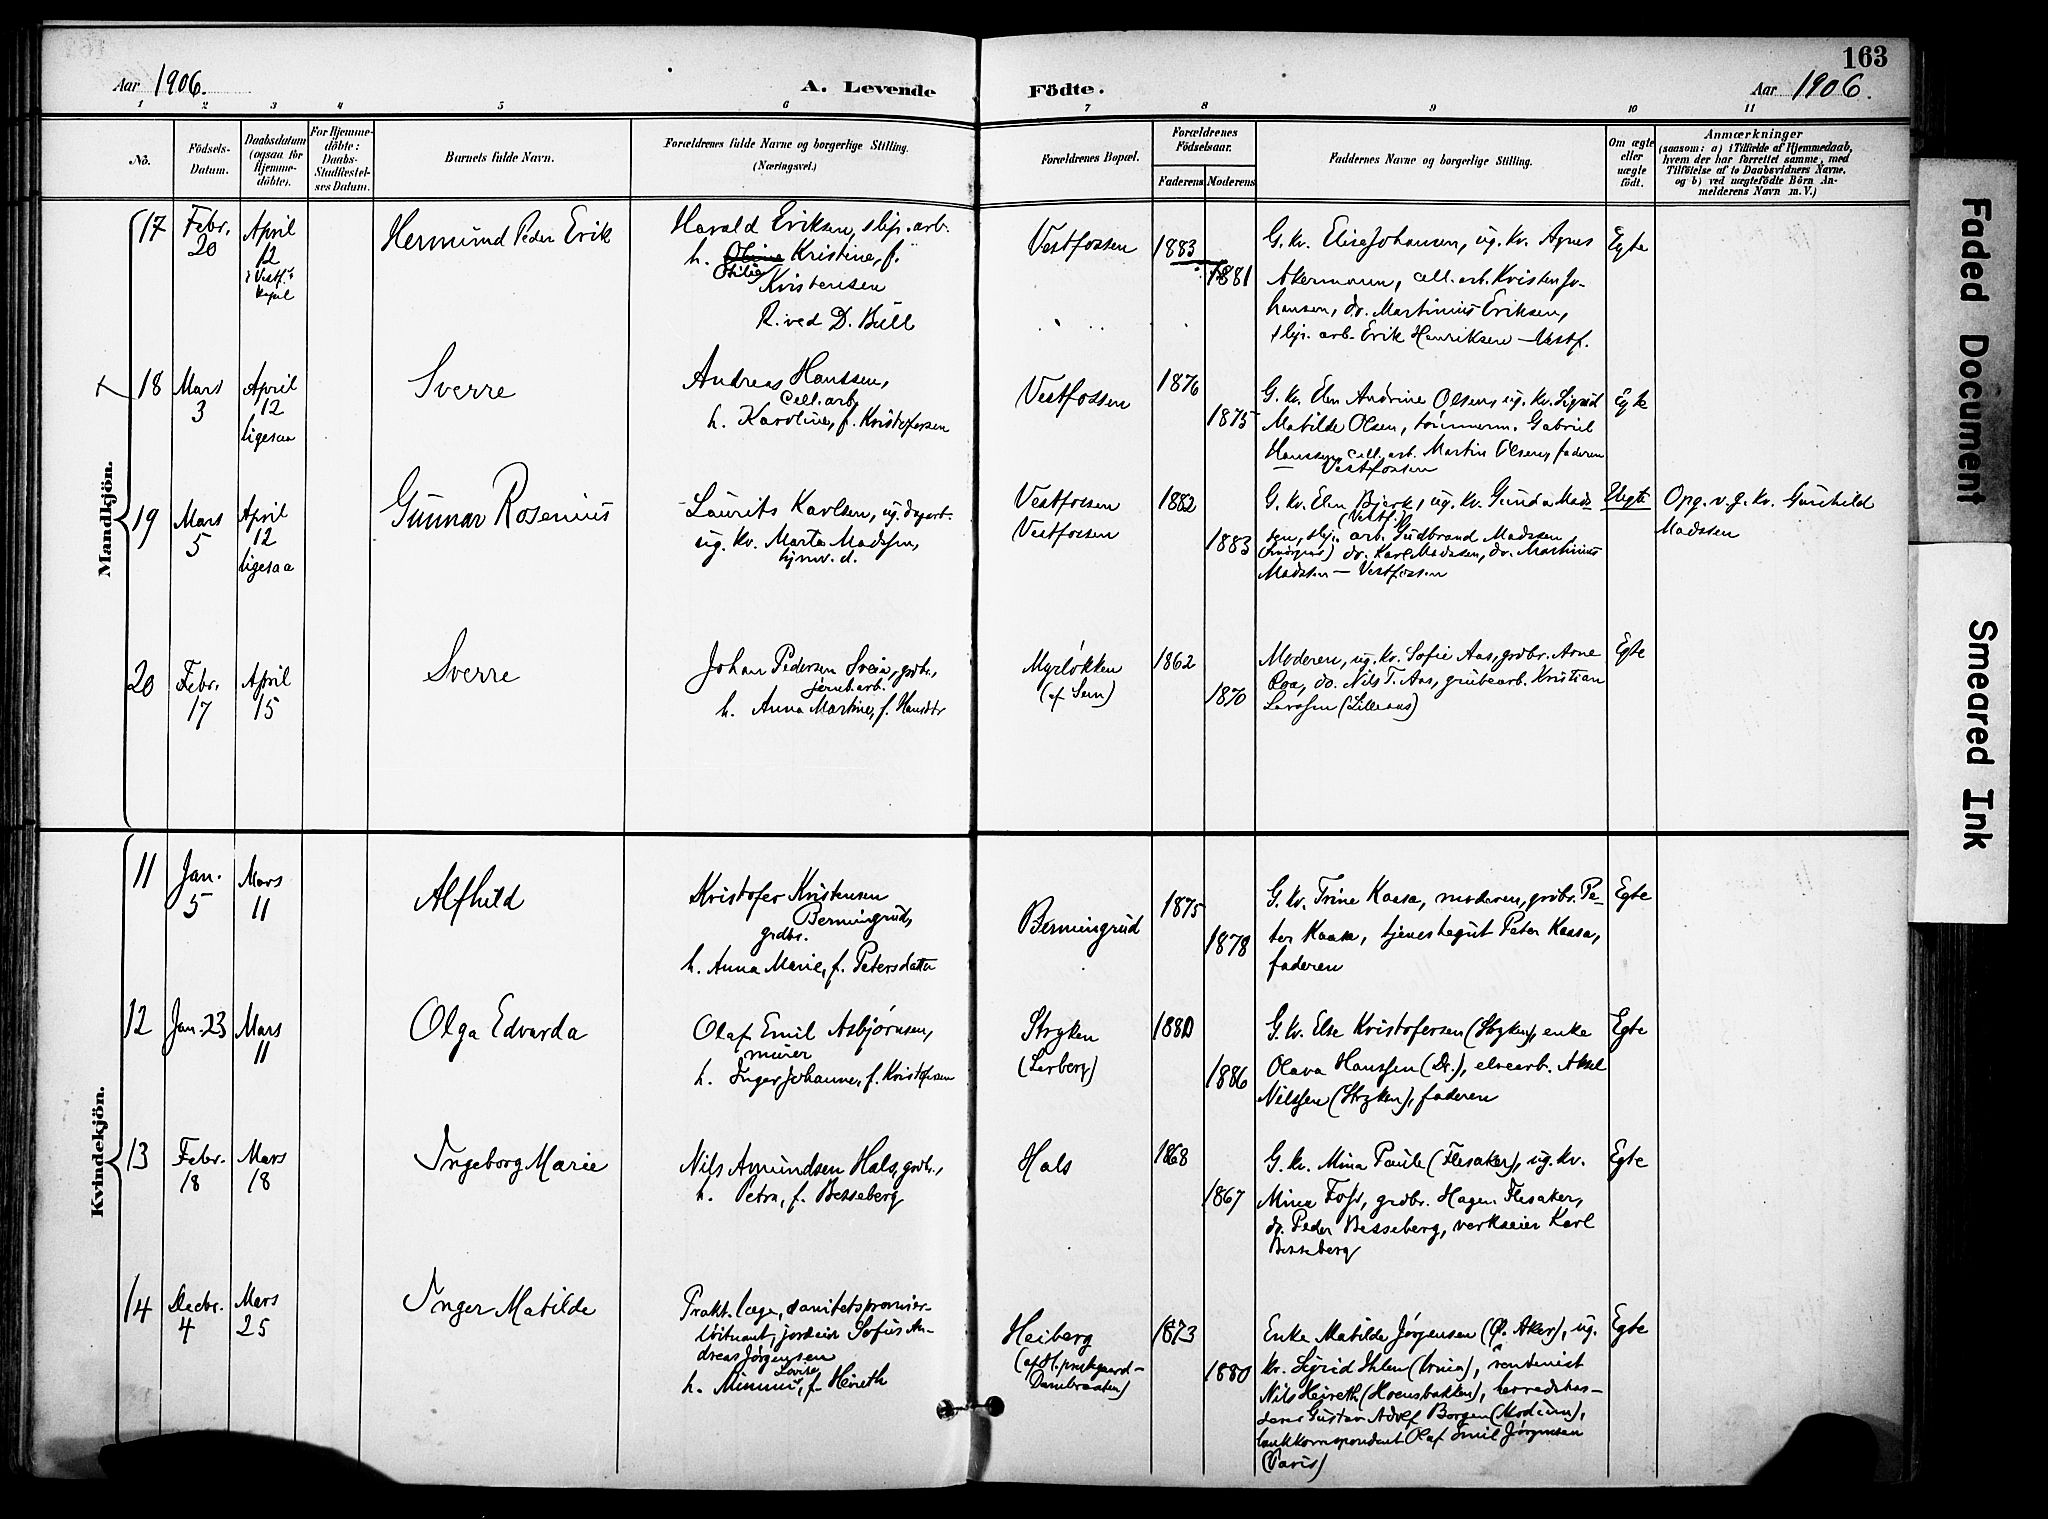 163
Aar 1906.
A. Levende
Födte.
Aar 1906.
1 2 3 4 5 6 7 8 9 10 11
No.
Födsels-
Datum.
Daabsdatum
(ogsaa for
Hjemme-
döbte).
For Hjemme-
döbte:
Daabs-
Stadfæstel-
ses Datum.
Barnets fulde Navn.
Forældrenes fulde Navne og borgerlige Stilling.
(Næringsvei.)
Forældrenes Bopæl.
Forældrenes
Födselsaar.
Faderens
Moderens
Faddernes Navne og borgerlige Stilling.
Om ægte
eller
uægte
födt.
Anmærkninger
(saasom: a) i Tilfælde af Hjemmedaab,
hvem der har forrettet samme, med
Tilföielse af to Daabsvidners Navne,
og b) ved uægtefödte Börn An-
melderens Navn m. V.)
Mandkjön.
17
Febr.
20
April
12
i Vestf.s
kapel
Hermund Peder Erik
Harald Eriksen, slip. arb.
h. Oline Kristine, f.
Otilie
Kristensen
R. ved D. Bull
Vestfossen
1883
1881
G. kv. Elise Johansen, ug. kv. Agnes
Akermann, cell. arb. Kristen Jo-
hansen, do. Martinius Eriksen,
slip. arb. Erik Henriksen – Vestf.
Egte
18
Mars
3
April
12
ligesaa
Sverre
Andreas Hanssen,
cell. arb.
h. Karoline, f. Kristofersen
Vestfossen
1876
1875
G. kv. Elen Andrine Olsen, ug. kv. Sigrid
Matilde Olsen, tømmerm. Gabriel
Hanssen, cell. arb. Martin Olsen, faderen
– Vestfossen
Egte
19
Mars
5
April
12
ligesaa
Gunnar Rosenius
Laurits Karlsen, ug.
ug. kv. Marta Madssen,
hjmv. d.
Vestfossen
Vestfossen
1882
1883
G. kv. Elen Bjerk, ug. kv. Gunda Mads-
(Vestf.)
sen, slip. arb. Gudbrand Madssen
do. Karl Madssen, do. Martinius
Madssen – Vestfossen
Uegte
Opg. v. g. kv. Gunhild
Madssen
20
Febr.
17
April
15
Sverre
Johan Pedersen Sveia, grdbr.,
jernb. arb.
h. Anna Martine, f. Hansdtr
Myrløkken
(af Sem)
1862
1870
Moderen, ug. kv. Sofie Aas, grdbr. Arne
do. Nils T. Aas, grubearb. Kristian
Larssen (Lilleaas)
Egte
Kvindekjön.
11
Jan.
5
Mars
11
Alfhild
Kristofer Kristensen
Bermingrud,
grdbr.
h. Anna Marie, f. Petersdatter
Bermingrud
1875
1878
G. kv. Trine Kaasa, moderen, grdbr. Pe-
ter Kaasa, tjenestegut Peter Kaasa,
faderen
Egte
12
Jan. 23
Mars
11
Olga Edvarda
Olaf Emil Asbjørnsen,
murer
h. Inger Johanne, f. Kristofersen
Stryken
(Lerberg)
1880
1886
G. kv. Else Kristofersen (Stryken), enke
Olava Hanssen (Dr.), elvearb. Aksel
Nilssen (Stryken), faderen
Egte
13
Febr.
18
Mars
18
Ingeborg Marie
Nils Amundsen Hals, grdbr.,
h. Petra, f. Besseberg
Hals
1868
1867
G. kv. Mina Paule (Flesaker), ug. kv.
Mina Foss, grdbr. Hagen Flesaker,
do. Peder Besseberg, verkseier Karl
Besseberg
Egte
14
Decbr.
4
Mars
25
Inger Matilde
Prakt. læge, sanitetspremier-
løitnant, jordeier Sofus An-
dreas Jørgensen
Lovise
h. Mimmi, f. Heireth
Heiberg
(af H. prestgaard –
Dambraaten)
1873
1880
Enke Matilde Jørgensen (Ø. Aker), ug.
kv. Sigrid Ihlen, rentenist
Nils Heireth (Hoensbakken), herredskas-
serer Gustav Adolf Borgen (Modum),
bankkorrespondent Olaf Emil Jørgensen
(Paris)
Egte
Faded Document
Smeared Ink